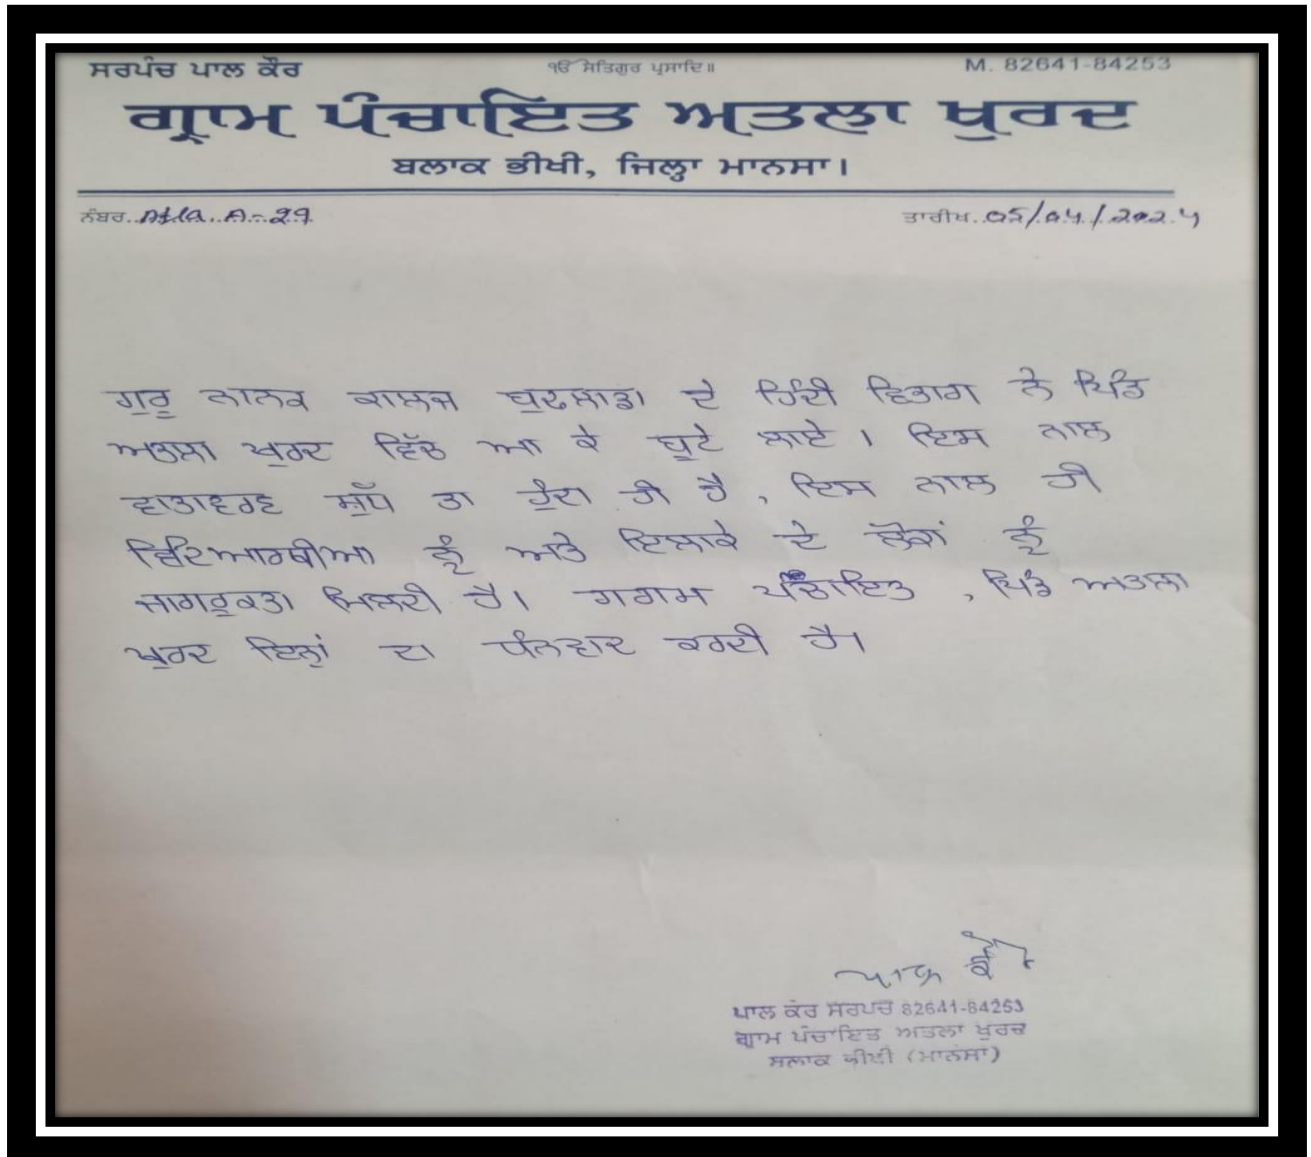 ਸਰਪੰਚ ਪਾਲ ਕੌਰ
ੴ ਸਤਿਗੁਰ ਪ੍ਰਸਾਦਿ॥
M. 82641-84253
ਗ੍ਰਾਮ ਪੰਚਾਇਤ ਅਤਲਾ ਖੁਰਦ
ਬਲਾਕ ਭੀਖੀ, ਜਿਲ੍ਹਾ ਮਾਨਸਾ।
ਨੰਬਰ. Atla. A-29
ਤਾਰੀਖ. 05/04/2024
ਗੁਰੂ ਨਾਨਕ ਕਾਲਜ ਬੁਢਲਾਡਾ ਦੇ ਹਿੰਦੀ ਵਿਭਾਗ ਨੇ ਪਿੰਡ
ਅਤਲਾ ਖੁਰਦ ਵਿੱਚ ਆ ਕੇ ਬੂਟੇ ਲਾਏ । ਇਸ ਨਾਲ
ਵਾਤਾਵਰਣ ਸ਼ੁੱਧ ਤਾ ਹੁੰਦਾ ਹੀ ਹੈ , ਇਸ ਨਾਲ ਹੀ
ਵਿਦਿਆਰਥੀਆ ਨੂੰ ਅਤੇ ਇਲਾਕੇ ਦੇ ਲੋਕਾਂ ਨੂੰ
ਜਾਗਰੂਕਤਾ ਮਿਲਦੀ ਹੈ। ਗਰਾਮ ਪੰਚਾਇਤ , ਪਿੰਡ ਅਤਲਾ
ਖੁਰਦ ਇਨ੍ਹਾਂ ਦਾ ਧੰਨਵਾਦ ਕਰਦੀ ਹੈ।
ਪਾਲ ਕੌਰ
ਪਾਲ ਕੌਰ ਸਰਪੰਚ 82641-84253
ਗ੍ਰਾਮ ਪੰਚਾਇਤ ਅਤਲਾ ਖੁਰਦ
ਬਲਾਕ ਭੀਖੀ (ਮਾਨਸਾ)